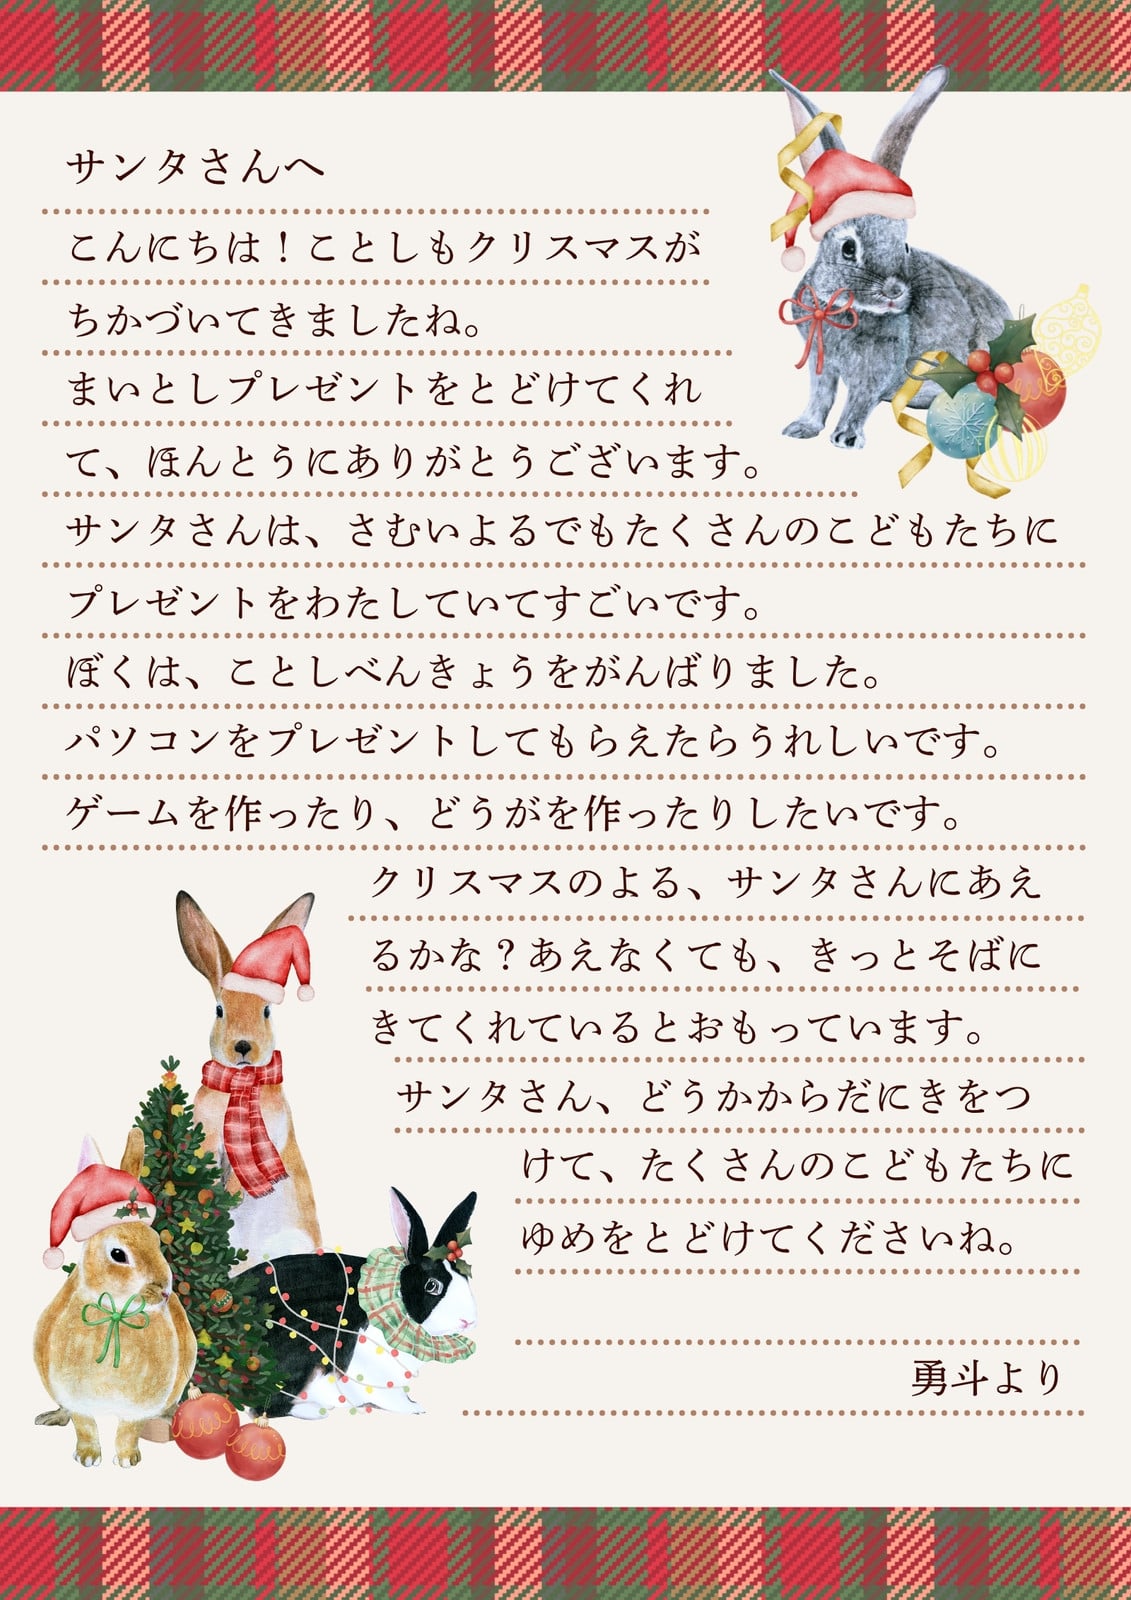 サンタさんへ
こんにちは！ことしもクリスマスが
ちかづいてきましたね。
まいとしプレゼントをとどけてくれ
て、ほんとうにありがとうございます。
サンタさんは、さむいよるでもたくさんのこどもたちに
プレゼントをわたしていてすごいです。
ぼくは、ことしべんきょうをがんばりました。
パソコンをプレゼントしてもらえたらうれしいです。
ゲームを作ったり、どうがを作ったりしたいです。
クリスマスのよる、サンタさんにあえ
るかな？あえなくても、きっとそばに
きてくれているとおもっています。
サンタさん、どうかからだにきをつ
けて、たくさんのこどもたちに
ゆめをとどけてくださいね。
勇斗より